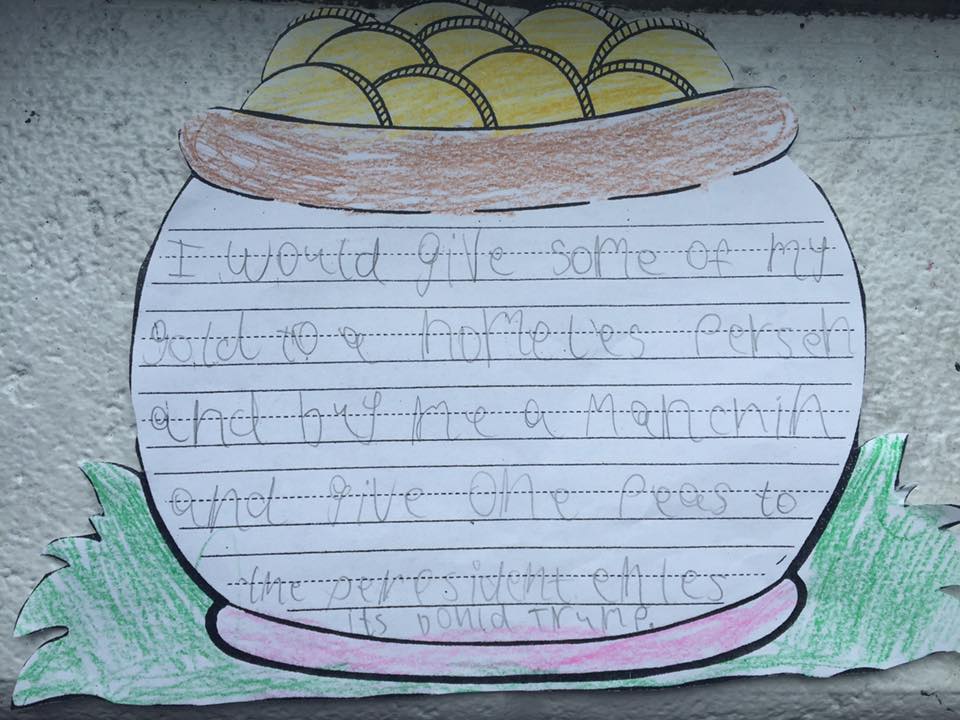 I would give some of my
gold to a homeles persen
and buy me a manchin
and give one peas to
the peresident enles
its Donld Trump.